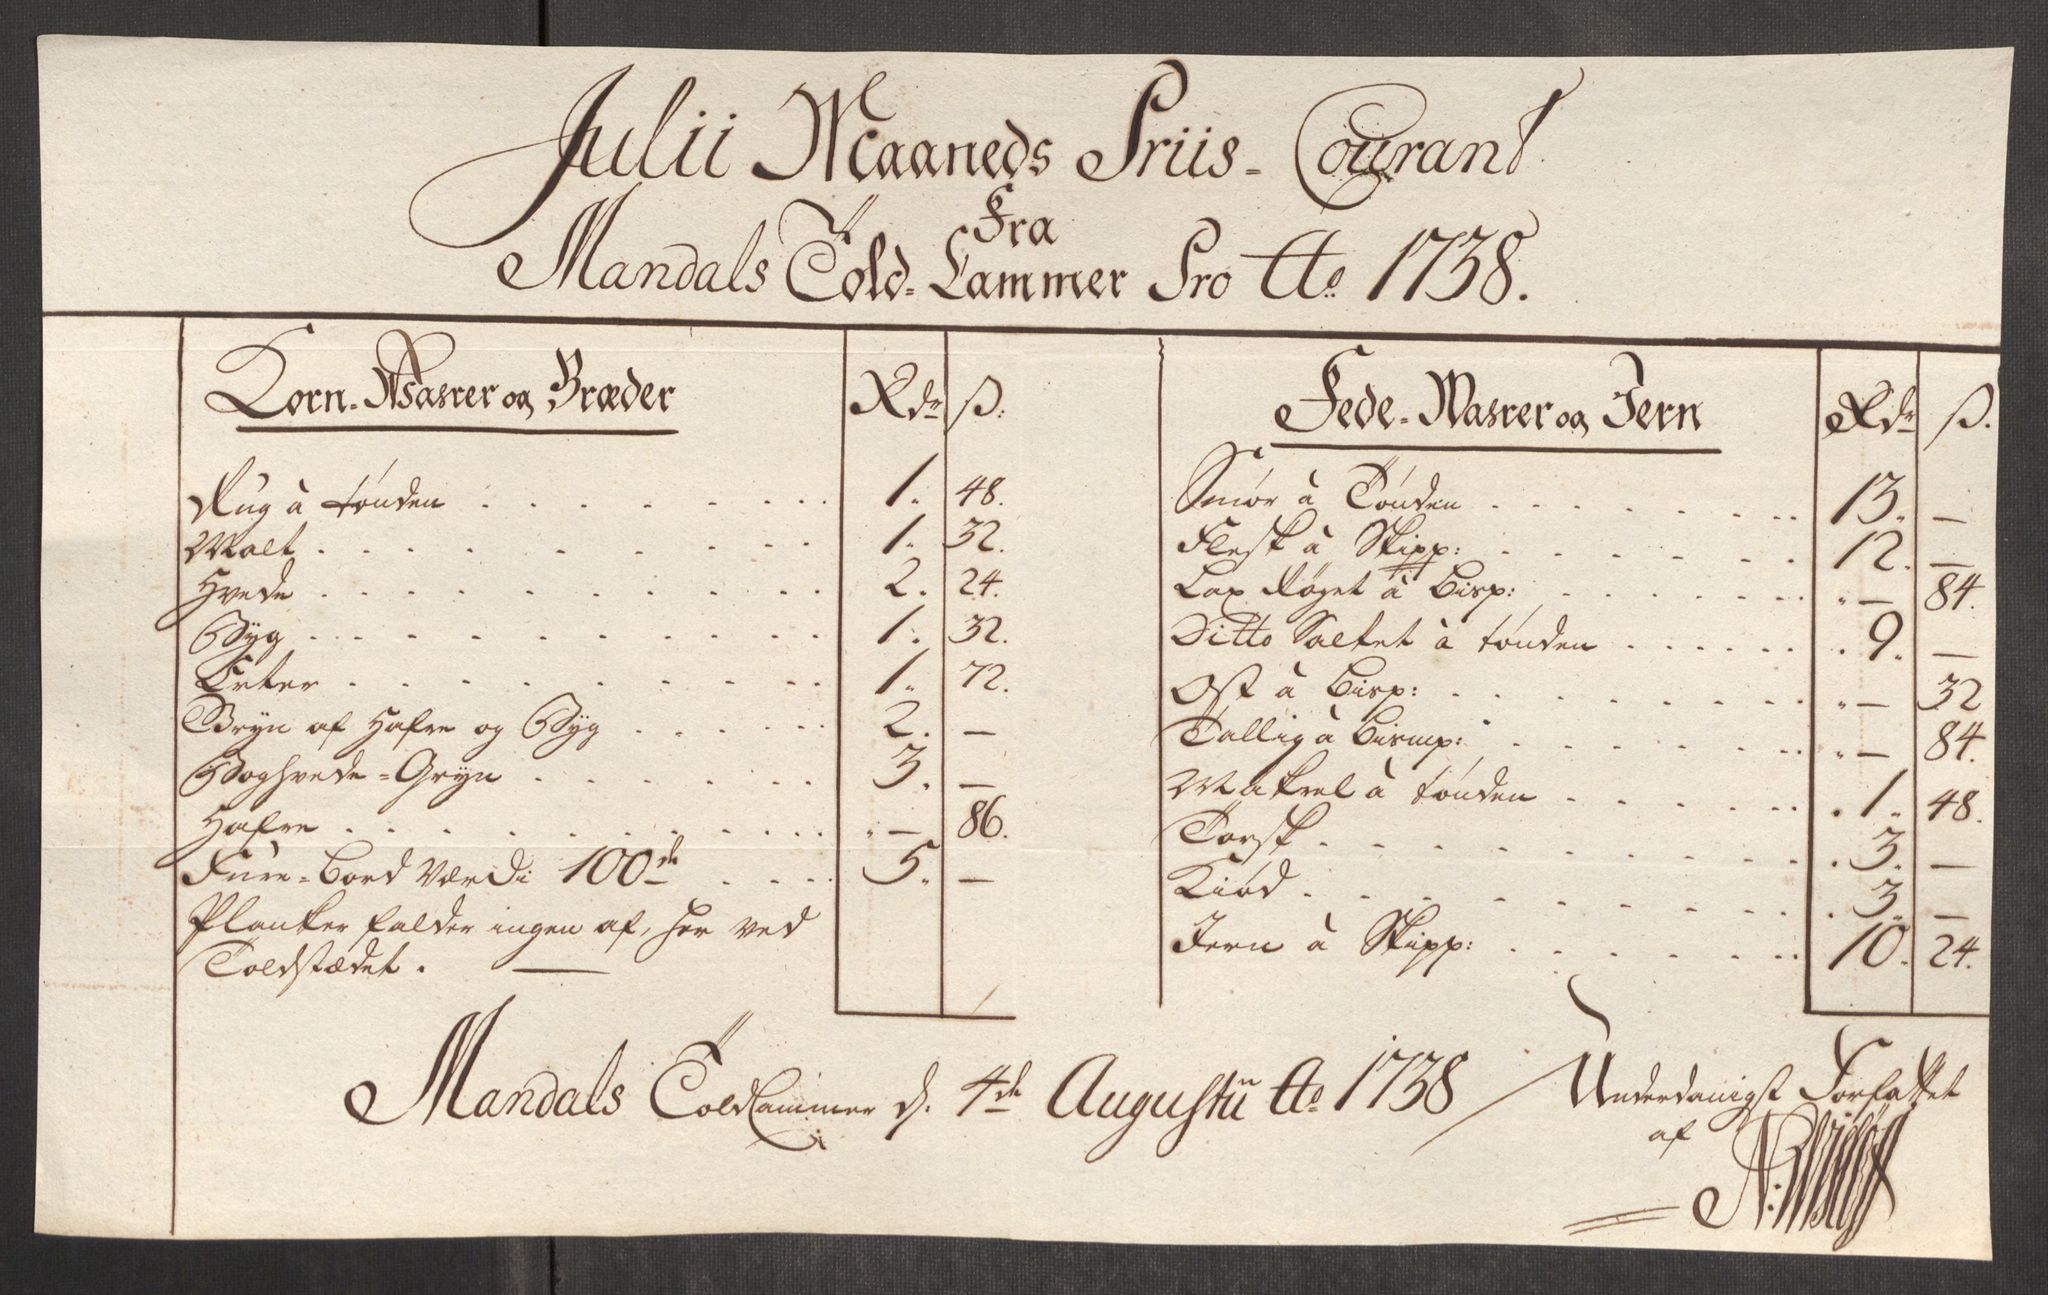 Julii Maaneds Priis-Courant
Fra
Mandals Told-Cammer Pro Ao 1738.
Korn-Wahrer og Bræder Rdr ß:
Rug à tønden 1. 48.
Malt 1. 32.
Hvede 2. 24.
Byg 1. 32.
Erter 1. 72.
Gryn af Hafre og Byg 2. —
Boghvede-Gryn 3. —
Hafre — 86.
Fure-Bord Værdi 100de 5. —
Planker falder ingen af, her ved
Toldstædet. —
Fede-Wahrer og Jern Rdr ß.
Smør à Tønden 13. —
Flesk à Skipp: 12. —
Lax Røget à Bisp: — 84.
Ditto Saltet à tønden 9. —
Ost à Bisp: — 32
Tallig à Bismp: — 84.
Makrel à tønden 1. 48.
Torsk 3. —
Kiød 3. —
Jern à Skipp: 10. 24.
Mandals ToldCammer d. 4de Augustii Ao 1738
Underdanigst Forfattet
af